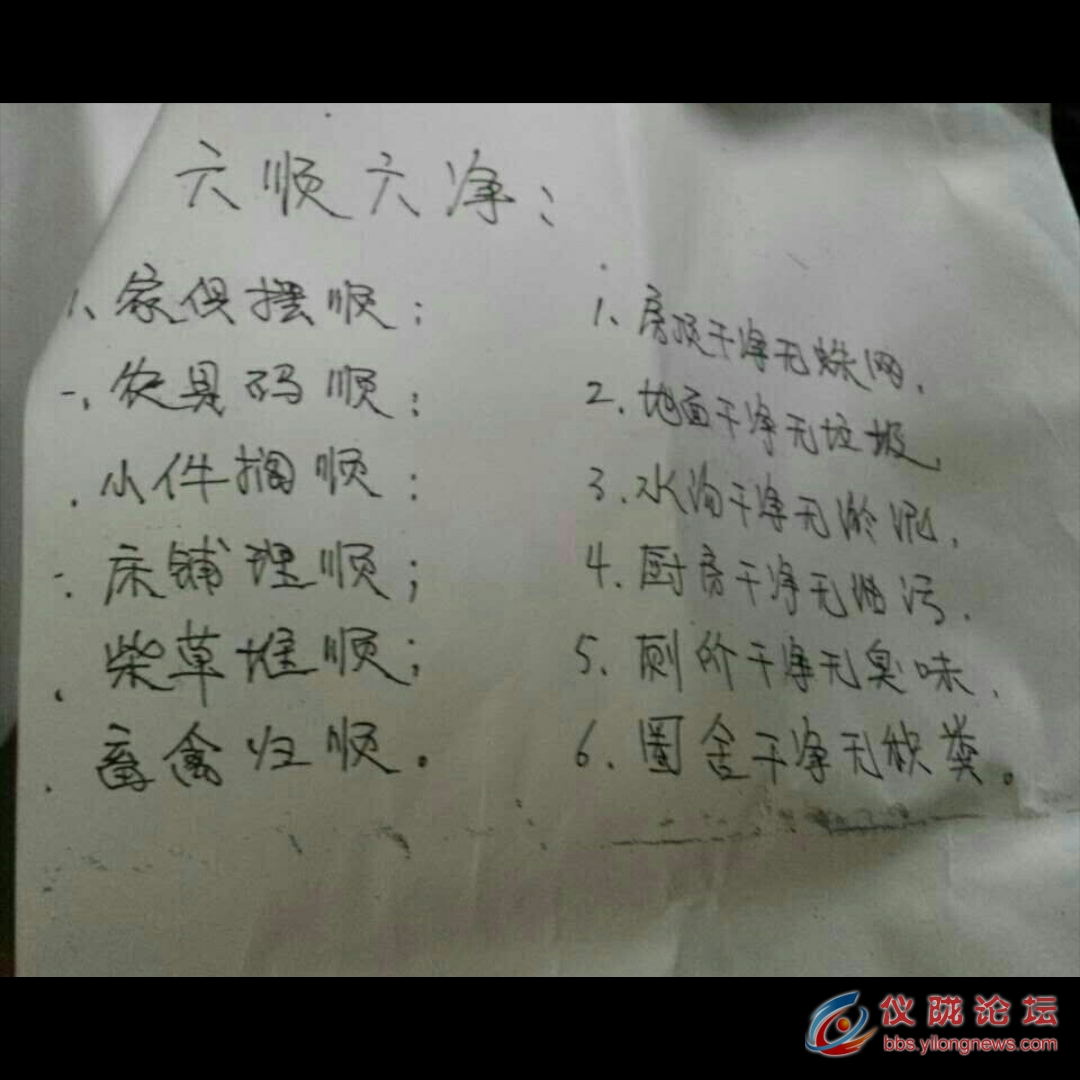 六顺六净：
1、家俱摆顺；
农具码顺；
小件搁顺；
床铺理顺；
柴草堆顺；
畜禽归顺。
1、房顶干净无蛛网，
2、地面干净无垃圾，
3、水沟干净无淤泥，
4、厨房干净无油污，
5、厕所干净无臭味，
6、圈舍干净无秋粪。
仪陇论坛
bbs.yilongnews.com